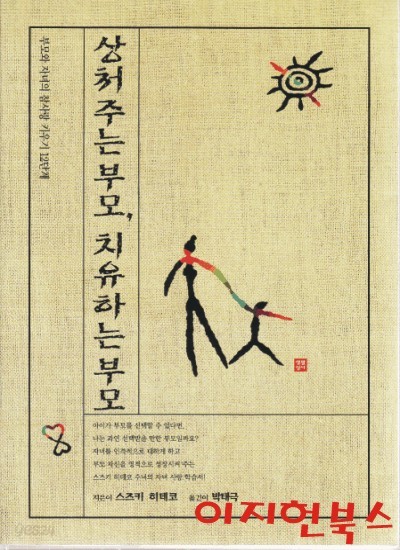 부모와 자녀의 참사랑 키우기 12단계
상처주는부모, 치유하는부모
아이가 부모를 선택할 수 있다면,
나는 과연 선택받을 만한 부모일까요?
자녀를 인격적으로 대하게 하고
부모 자신을 영적으로 성장시켜 주는
스즈키 히데코 수녀의 자녀 사랑 학습서!
지은이 스즈키 히데코 옮긴이 박태극
이지헌북스
yes24